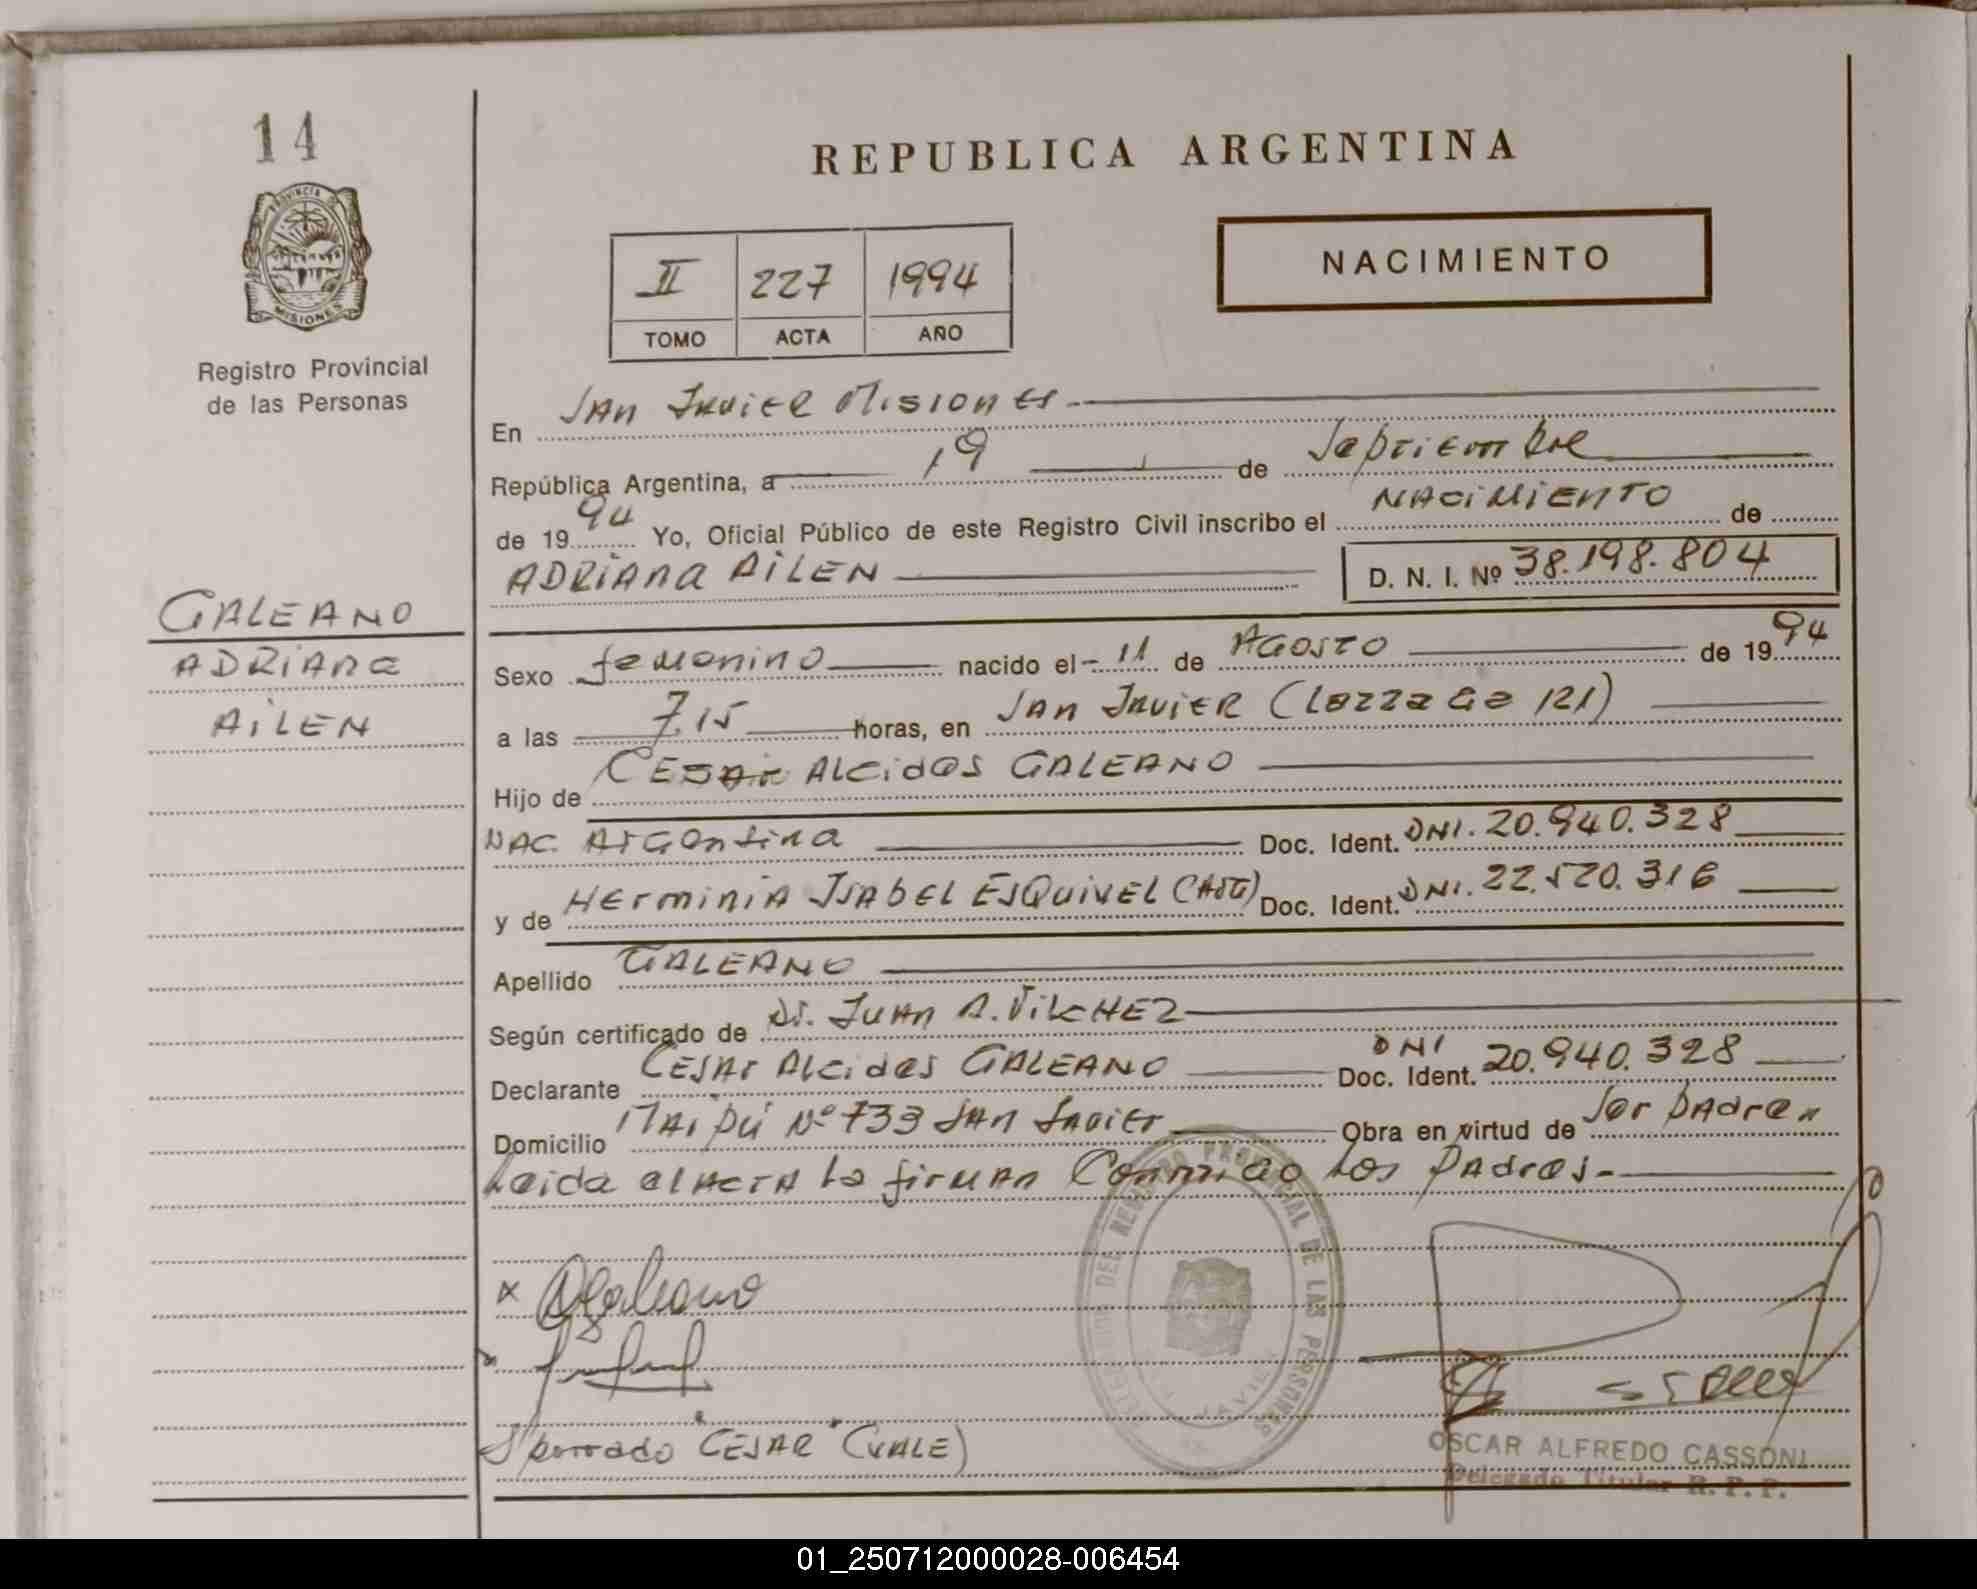 14
PROVINCIA DE
MISIONES
Registro Provincial
de las Personas
GALEANO
ADRIANA
AILEN
REPUBLICA ARGENTINA
NACIMIENTO
II 227 1994
TOMO ACTA AÑO
En San Javier Misiones
República Argentina, a 19 de Septiembre
de 1994 Yo, Oficial Público de este Registro Civil inscribo el NACIMIENTO de
ADRIANA AILEN D. N. I. Nº 38.198.804
Sexo femenino nacido el 11 de AGOSTO de 1994
a las 7,15 horas, en San Javier (Lezzaga 121)
Hijo de CESAR Alcides GALEANO
NAC. Argentina Doc. Ident. DNI. 20.940.328
y de Herminia Isabel Esquivel (Arg) Doc. Ident. DNI. 22.520.316
Apellido GALEANO
Según certificado de Dr. Juan A. Vilchez
Declarante Cesar Alcides GALEANO Doc. Ident. DNI 20.940.328
Domicilio Maipú Nº 733 San Javier Obra en virtud de Ser padre
Leida el Acta la firman Conmigo Los Padres-
x AGaleano
S/ borrado "CESAR" (VALE)
DEL REGISTRO PROVINCIAL DE LAS PERSONAS
OSCAR ALFREDO CASSONI
Delegado Titular R. P. P.
01_250712000028-006454